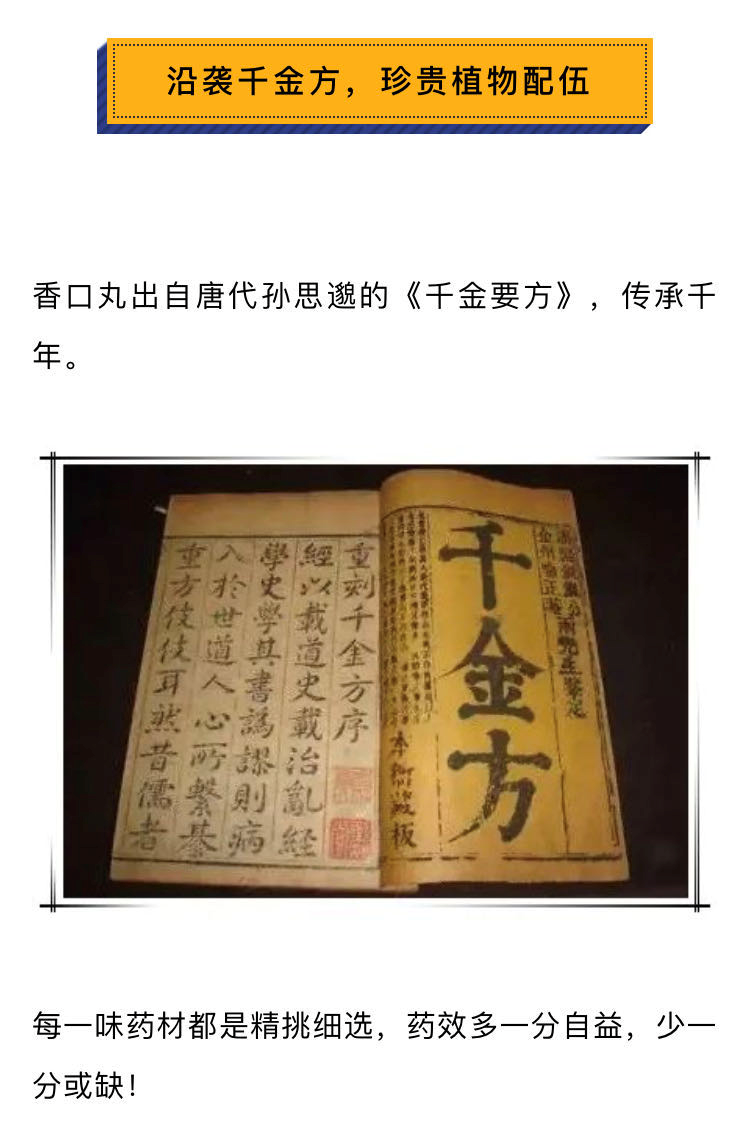 沿袭千金方，珍贵植物配伍
香口丸出自唐代孙思邈的《千金要方》，传承千
年。
千金方
本衙藏板
重刻千金方序
經以載道史載治亂経
學史學其書譌謬則病
入於世道人心所繫綦
重方伎伎耳然昔儒者
每一味药材都是精挑细选，药效多一分自益，少一
分或缺！